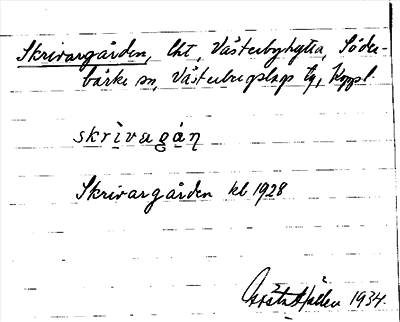 Skrivargården, lht, Västerbyhytta, Söder-
bärke sn, Västerbergslags tg, Koppl.
skrìvagáṇ
Skrivargården kb 1928
Gösta Hallén 1934.